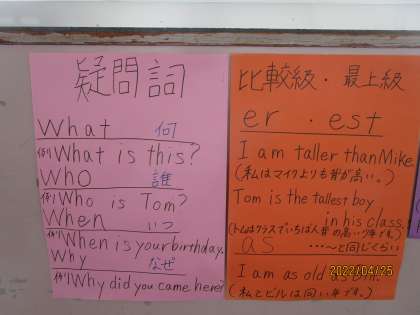 疑問詞
What 何
例)What is this?
Who 誰
例)Who is Tom?
When いつ
例)When is your birthday.
Why なぜ
例)Why did you came here?
比較級・最上級
er・est
I am taller than Mike.
(私はマイクよりも背が高い。)
Tom is the tallest boy
in his class.
(トムはクラスでいちばん背の高い少年です。)
as ……〜と同じくらい
I am as old as Bill.
(私とビルは同い年です。)
2022/04/25